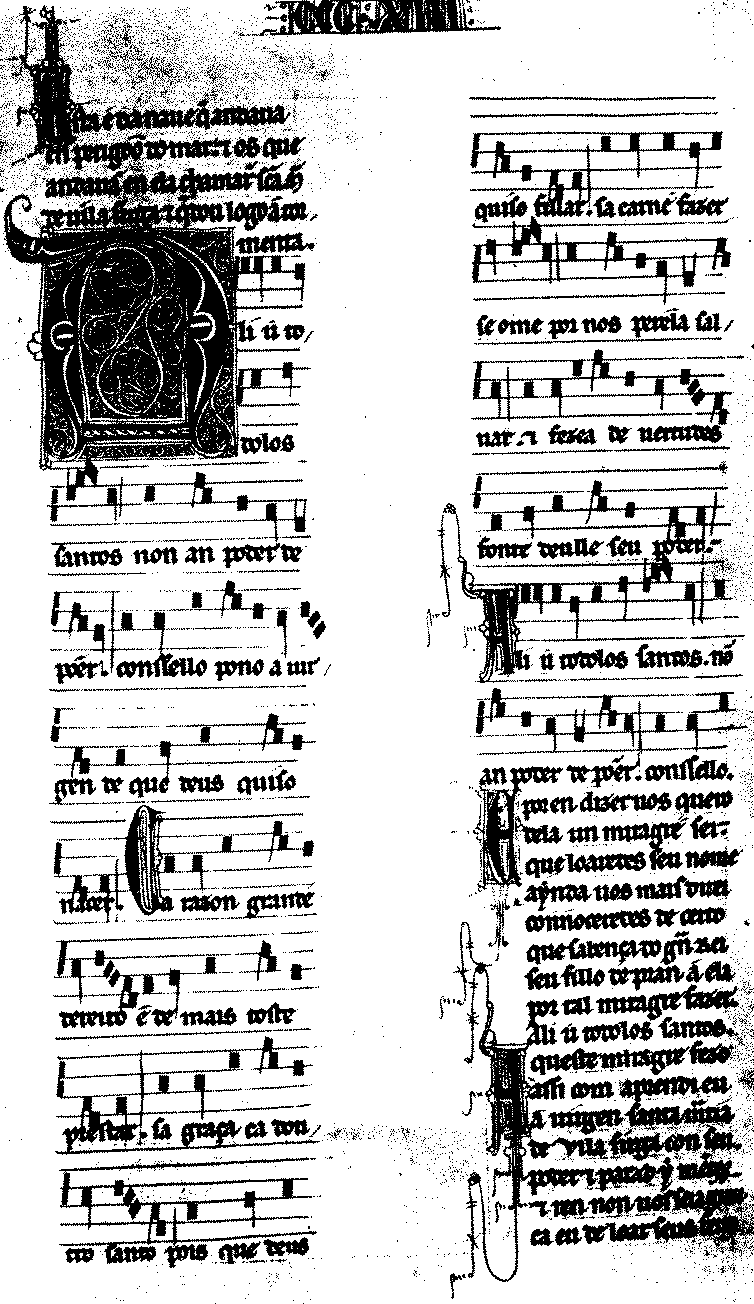 CCCXIII
Esta é da naue q̃ andaua
en perigoo do mar. ⁊ os que
andauã en ela chamarõ sc̃a Mª
de uila sirga ⁊ q̃dou logo a tor,
menta.
Ali u to,
dolos
santos non an poder de
põer. conssello pono a uir,
gen de que deus quiso
nacer. Ca razon grande
dereito é de mais toste
prestar. sa graça ca dou,
tro santo pois que deus
quiso fillar. sa carne fazer
se ome por nos perela sal,
uar. ⁊ fezea de uertudes
fonte deulle seu poder.
Ali u todolos santos. nõ
an poder de põer. conssello.
E poren dizer uos quero
dela un miragre sei⁊
que loaredes seu nome
aynda uos mais direi
connoceredes de certo
que sabença do grã Rei
seu fillo de pran á ela
por tal miragre fazer.
Ali u todolos santos.
Aqueste miragre fezo
assi com aprendi eu
a uirgen santa maria
de Vila sirga con seu
poder
⁊ ren non uos
ca en de loar seus